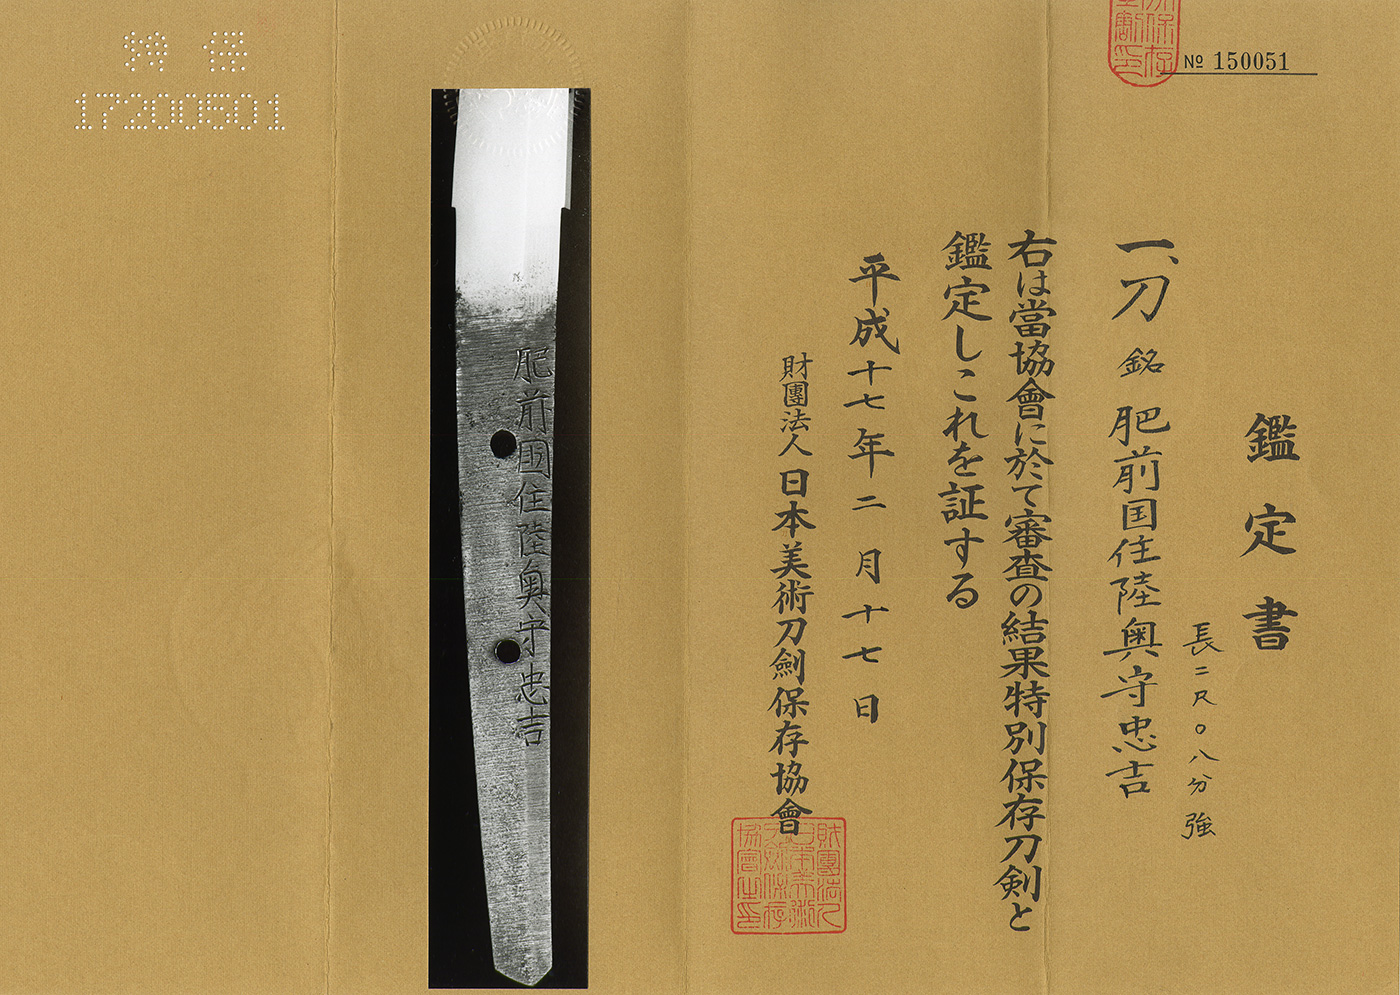 № 150051
鑑定書
一、刀 銘 肥前国住陸奥守忠吉
長二尺〇八分強
右は當協會に於て審査の結果特別保存刀剣と
鑑定しこれを証する
平成十七年二月十七日
財團法人 日本美術刀劍保存協會
財團法人日本美術刀劍保存協會之印
肥前國住陸奥守忠吉
特保
17200501